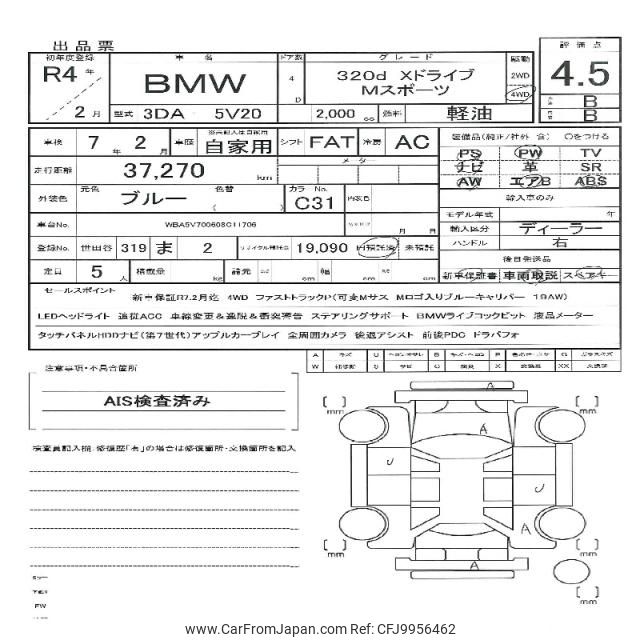 出品票
初年度登録 車名 ドア数 グレード 駆動 評価点
R4年 BMW 4 D 320d Xドライブ 2WD 4.5
2月 Mスポーツ 4WD B
型式 3DA 5V20 2,000 cc 燃料 軽油 B
車検 7年 2月 車歴 自家用 シフト FAT 冷房 AC 装備品(純正/社外 含) ○をつける
PS PW TV
走行距離 37,270 km メーター ナビ 革 SR
AW エアB ABS
外装色 元色 ブルー 色替 カラーNo. C31 内装色 輸入車のみ
モデル年式 年
車台No. WBA5V700608C11706 月 月 輸入区分 ディーラー
ハンドル 右
登録No. 世田谷 319 ま 2 リサイクル預託金 19,090 預託済 未預託
後日発送品
定員 5人 積載量 kg 諸元 幅 高 新車保証書 車両取説 スペアキー
セールスポイント
新車保証R7.2月迄 4WD ファストトラックP(可変Mサス Mロゴ入りブルーキャリパー 19AW)
LEDヘッドライト 追従ACC 車線変更&逸脱&衝突警告 ステアリングサポート BMWライブコックピット 液晶メーター
タッチパネルHDDナビ(第7世代)アップルカープレイ 全周囲カメラ 後退アシスト 前後PDC ドラバフォ
A キズ U B P G
W S C X XX
注意事項・不具合箇所
AIS検査済み
検査員記入欄 修復歴「有」の場合は修復箇所・交換箇所を記入
A
[ ] mm [ ] mm
A
J
J
A
[ ] mm [ ] mm
A
[ ] mm
FW
© www.CarFromJapan.com Ref: CFJ9956462